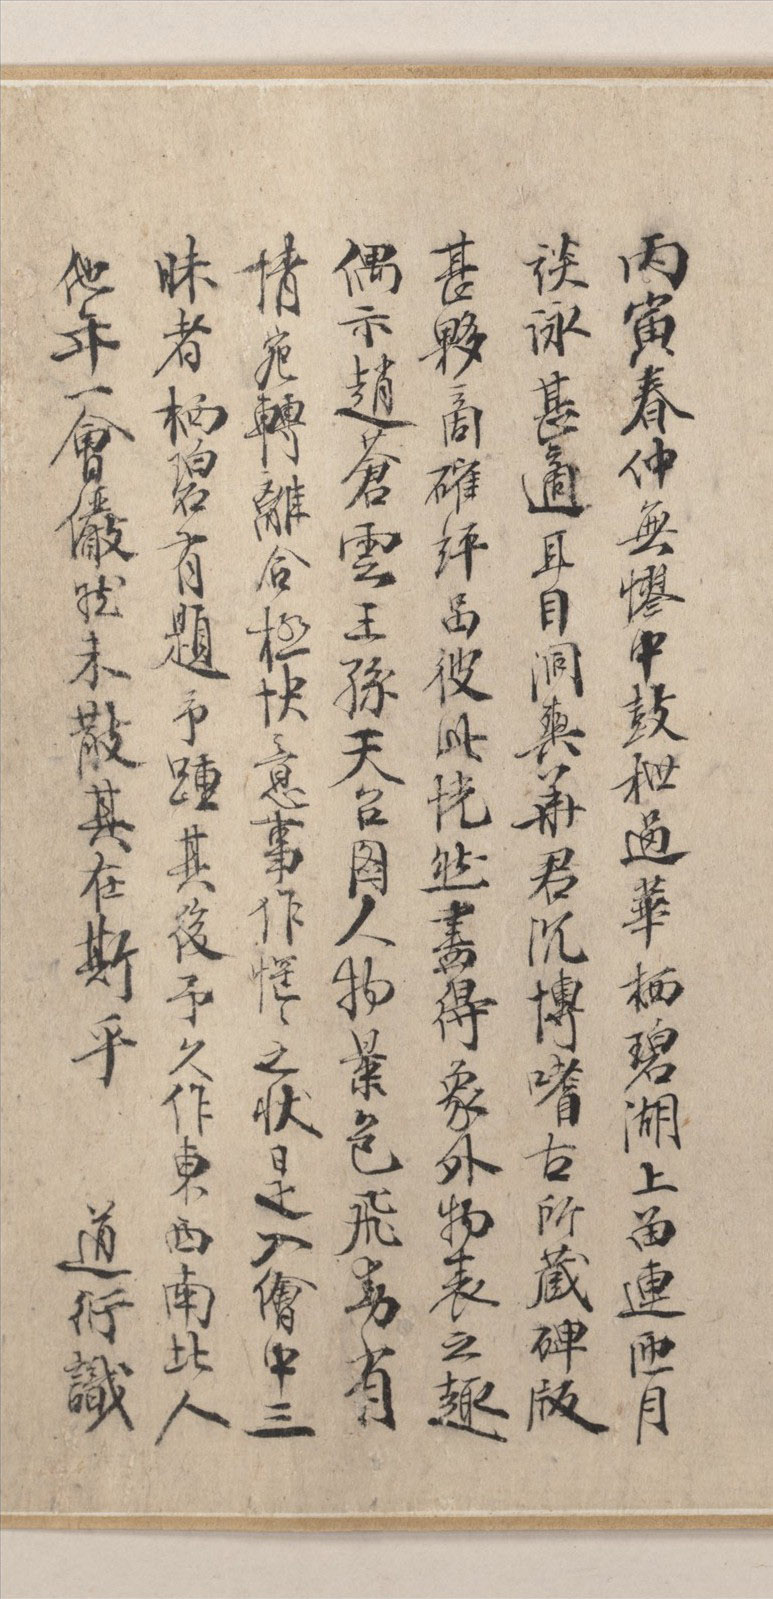 丙寅春仲無憀中鼓枻過華栖碧湖上留連匝月
談詠甚適耳目洞爽華君沉博嗜古所蔵碑版
甚夥商確評品彼此恍然盡得象外物表之趣
偶示趙蒼雲王孫天台圖人物景色飛動有
情宛轉離合極快意事作惺〻之狀是入繪中三
昧者栖碧有題予踵其後予久作東西南北人
他年一會儼然未散其在斯乎 道衍識